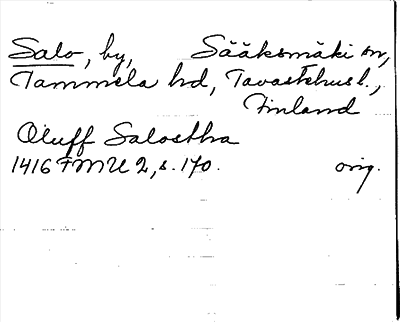 Salo, by, Sääksmäki sn,
Tammela hd, Tavastehus l.,
Finland
Oluff Salostha
1416 FMU 2, s. 170. orig.